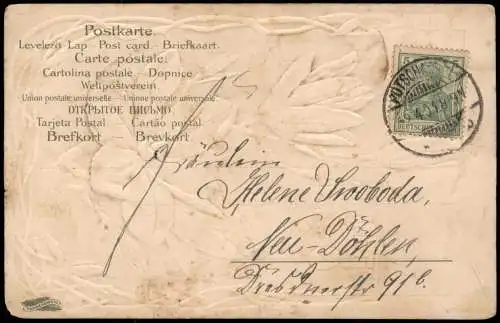 Postkarte.
Levelező Lap Post card. Briefkaart.
Carte postale.
Cartolina postale Dopnice
Weltpostverein
Union postale universelle - Unione postale universale
ОТКРЫТОЕ ПИСЬМО
Tarjeta Postal Cartão postal
Brefkort Brevkort
Fräulein
Helene Swoboda,
Neu-Döhlen,
Dresdnerstr 91 b.